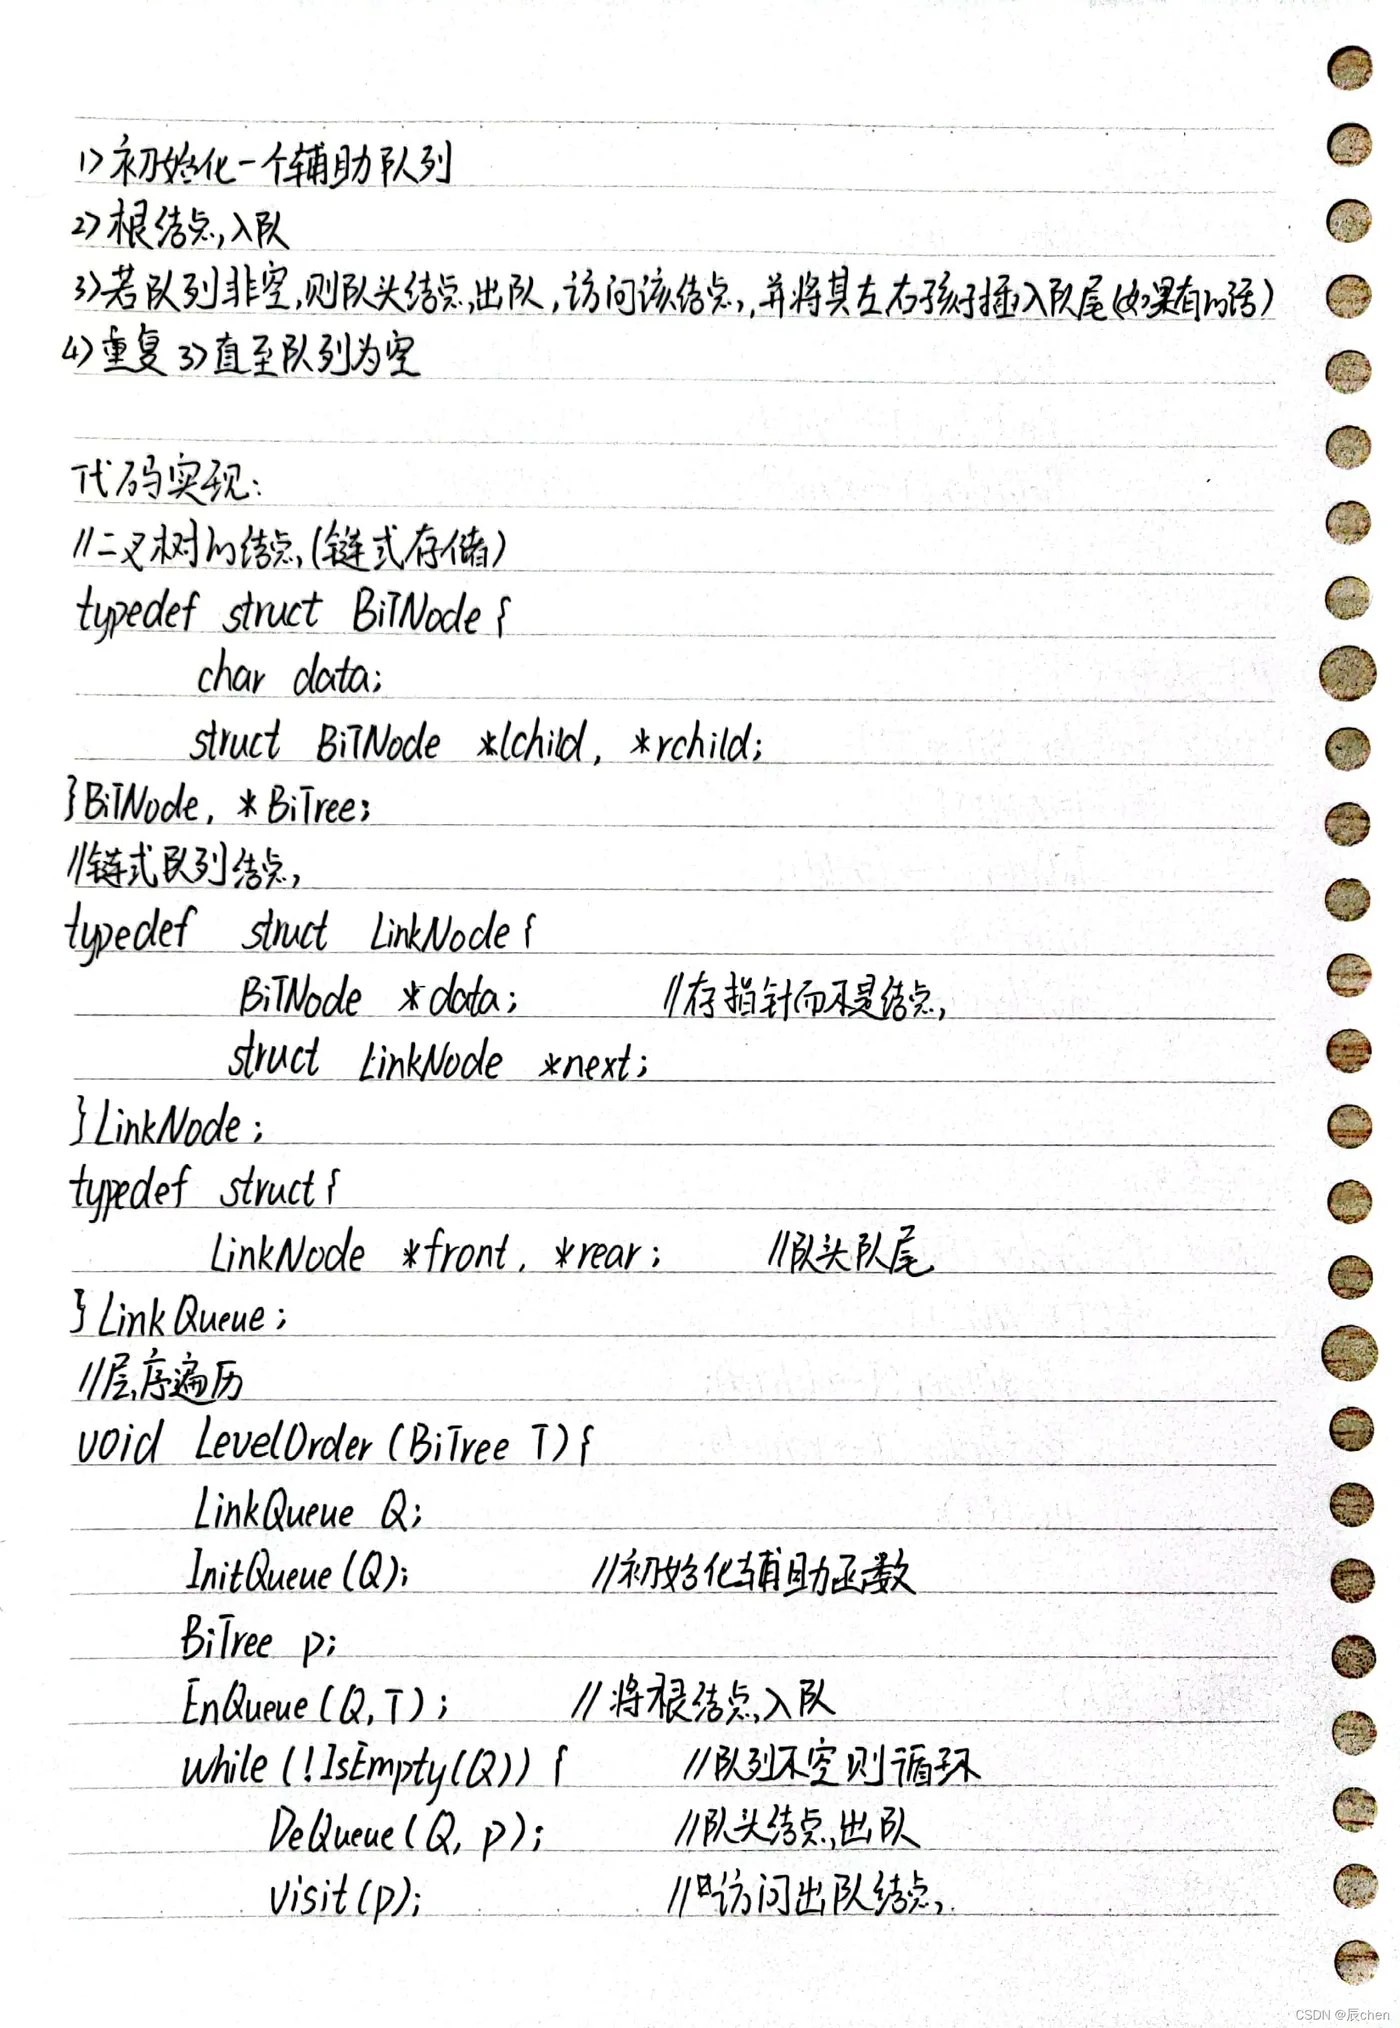 1>初始化一个辅助队列
2>根结点入队
3>若队列非空,则队头结点出队,访问该结点,并将其左右孩子插入队尾(如果有的话)
4>重复3>直至队列为空
代码实现:
//二叉树的结点(链式存储)
typedef struct BiTNode{
char data;
struct BiTNode *lchild, *rchild;
}BiTNode, *BiTree;
//链式队列结点
typedef struct LinkNode{
BiTNode *data; //存指针而不是结点
struct LinkNode *next;
}LinkNode;
typedef struct{
LinkNode *front, *rear; //队头队尾
}LinkQueue;
//层序遍历
void LevelOrder(BiTree T){
LinkQueue Q;
InitQueue(Q); //初始化辅助函数
BiTree p;
EnQueue(Q,T); //将根结点入队
while(!IsEmpty(Q)){ //队列不空则循环
DeQueue(Q, p); //队头结点出队
visit(p); //访问出队结点
CSDN @辰chen